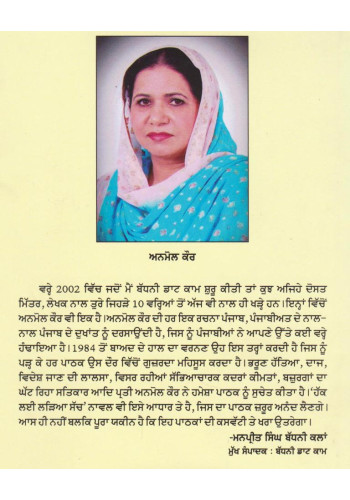 ਅਨਮੋਲ ਕੌਰ
ਵਰ੍ਹੇ 2002 ਵਿੱਚ ਜਦੋਂ ਮੈਂ ਬੱਧਨੀ ਡਾਟ ਕਾਮ ਸ਼ੁਰੂ ਕੀਤੀ ਤਾਂ ਕੁਝ ਅਜਿਹੇ ਦੋਸਤ
ਮਿੱਤਰ, ਲੇਖਕ ਨਾਲ ਤੁਰੇ ਜਿਹੜੇ 10 ਵਰ੍ਹਿਆਂ ਤੋਂ ਅੱਜ ਵੀ ਨਾਲ ਹੀ ਖੜ੍ਹੇ ਹਨ।ਇਨ੍ਹਾਂ ਵਿੱਚੋਂ
ਅਨਮੋਲ ਕੌਰ ਵੀ ਇਕ ਹੈ।ਅਨਮੋਲ ਕੌਰ ਦੀ ਹਰ ਇਕ ਰਚਨਾ ਪੰਜਾਬ, ਪੰਜਾਬੀਅਤ ਦੇ ਨਾਲ-
ਨਾਲ ਪੰਜਾਬ ਦੇ ਦੁਖਾਂਤ ਨੂੰ ਦਰਸਾਉਂਦੀ ਹੈ, ਜਿਸ ਨੂੰ ਪੰਜਾਬੀਆਂ ਨੇ ਆਪਣੇ ਉੱਤੇ ਕਈ ਵਰ੍ਹੇ
ਹੰਢਾਇਆ ਹੈ।1984 ਤੋਂ ਬਾਅਦ ਦੇ ਹਾਲ ਦਾ ਵਰਨਣ ਉਹ ਇਸ ਤਰ੍ਹਾਂ ਕਰਦੀ ਹੈ ਜਿਸ ਨੂੰ
ਪੜ੍ਹ ਕੇ ਹਰ ਪਾਠਕ ਉਸ ਦੌਰ ਵਿੱਚੋਂ ਗੁਜ਼ਰਦਾ ਮਹਿਸੂਸ ਕਰਦਾ ਹੈ। ਭਰੂਣ ਹੱਤਿਆ, ਦਾਜ,
ਵਿਦੇਸ਼ ਜਾਣ ਦੀ ਲਾਲਸਾ, ਵਿਸਰ ਰਹੀਆਂ ਸੱਭਿਆਚਾਰਕ ਕਦਰਾਂ ਕੀਮਤਾਂ, ਬਜ਼ੁਰਗਾਂ ਦਾ
ਘੱਟ ਰਿਹਾ ਸਤਿਕਾਰ ਆਦਿ ਪ੍ਰਤੀ ਅਨਮੋਲ ਕੌਰ ਨੇ ਹਮੇਸ਼ਾ ਪਾਠਕ ਨੂੰ ਸੁਚੇਤ ਕੀਤਾ ਹੈ।‘ਹੱਕ
ਲਈ ਲੜਿਆ ਸੱਚ’ ਨਾਵਲ ਵੀ ਇਸੇ ਆਧਾਰ ਤੇ ਹੈ, ਜਿਸ ਦਾ ਪਾਠਕ ਜ਼ਰੂਰ ਅਨੰਦ ਲੈਣਗੇ।
ਆਸ ਹੀ ਨਹੀਂ ਬਲਕਿ ਪੂਰਾ ਯਕੀਨ ਹੈ ਕਿ ਇਹ ਪਾਠਕਾਂ ਦੀ ਕਸਵੱਟੀ ਤੇ ਖਰਾ ਉਤਰੇਗਾ।
-ਮਨਪ੍ਰੀਤ ਸਿੰਘ ਬੱਧਨੀ ਕਲਾਂ
ਮੁੱਖ ਸੰਪਾਦਕ : ਬੱਧਨੀ ਡਾਟ ਕਾਮ